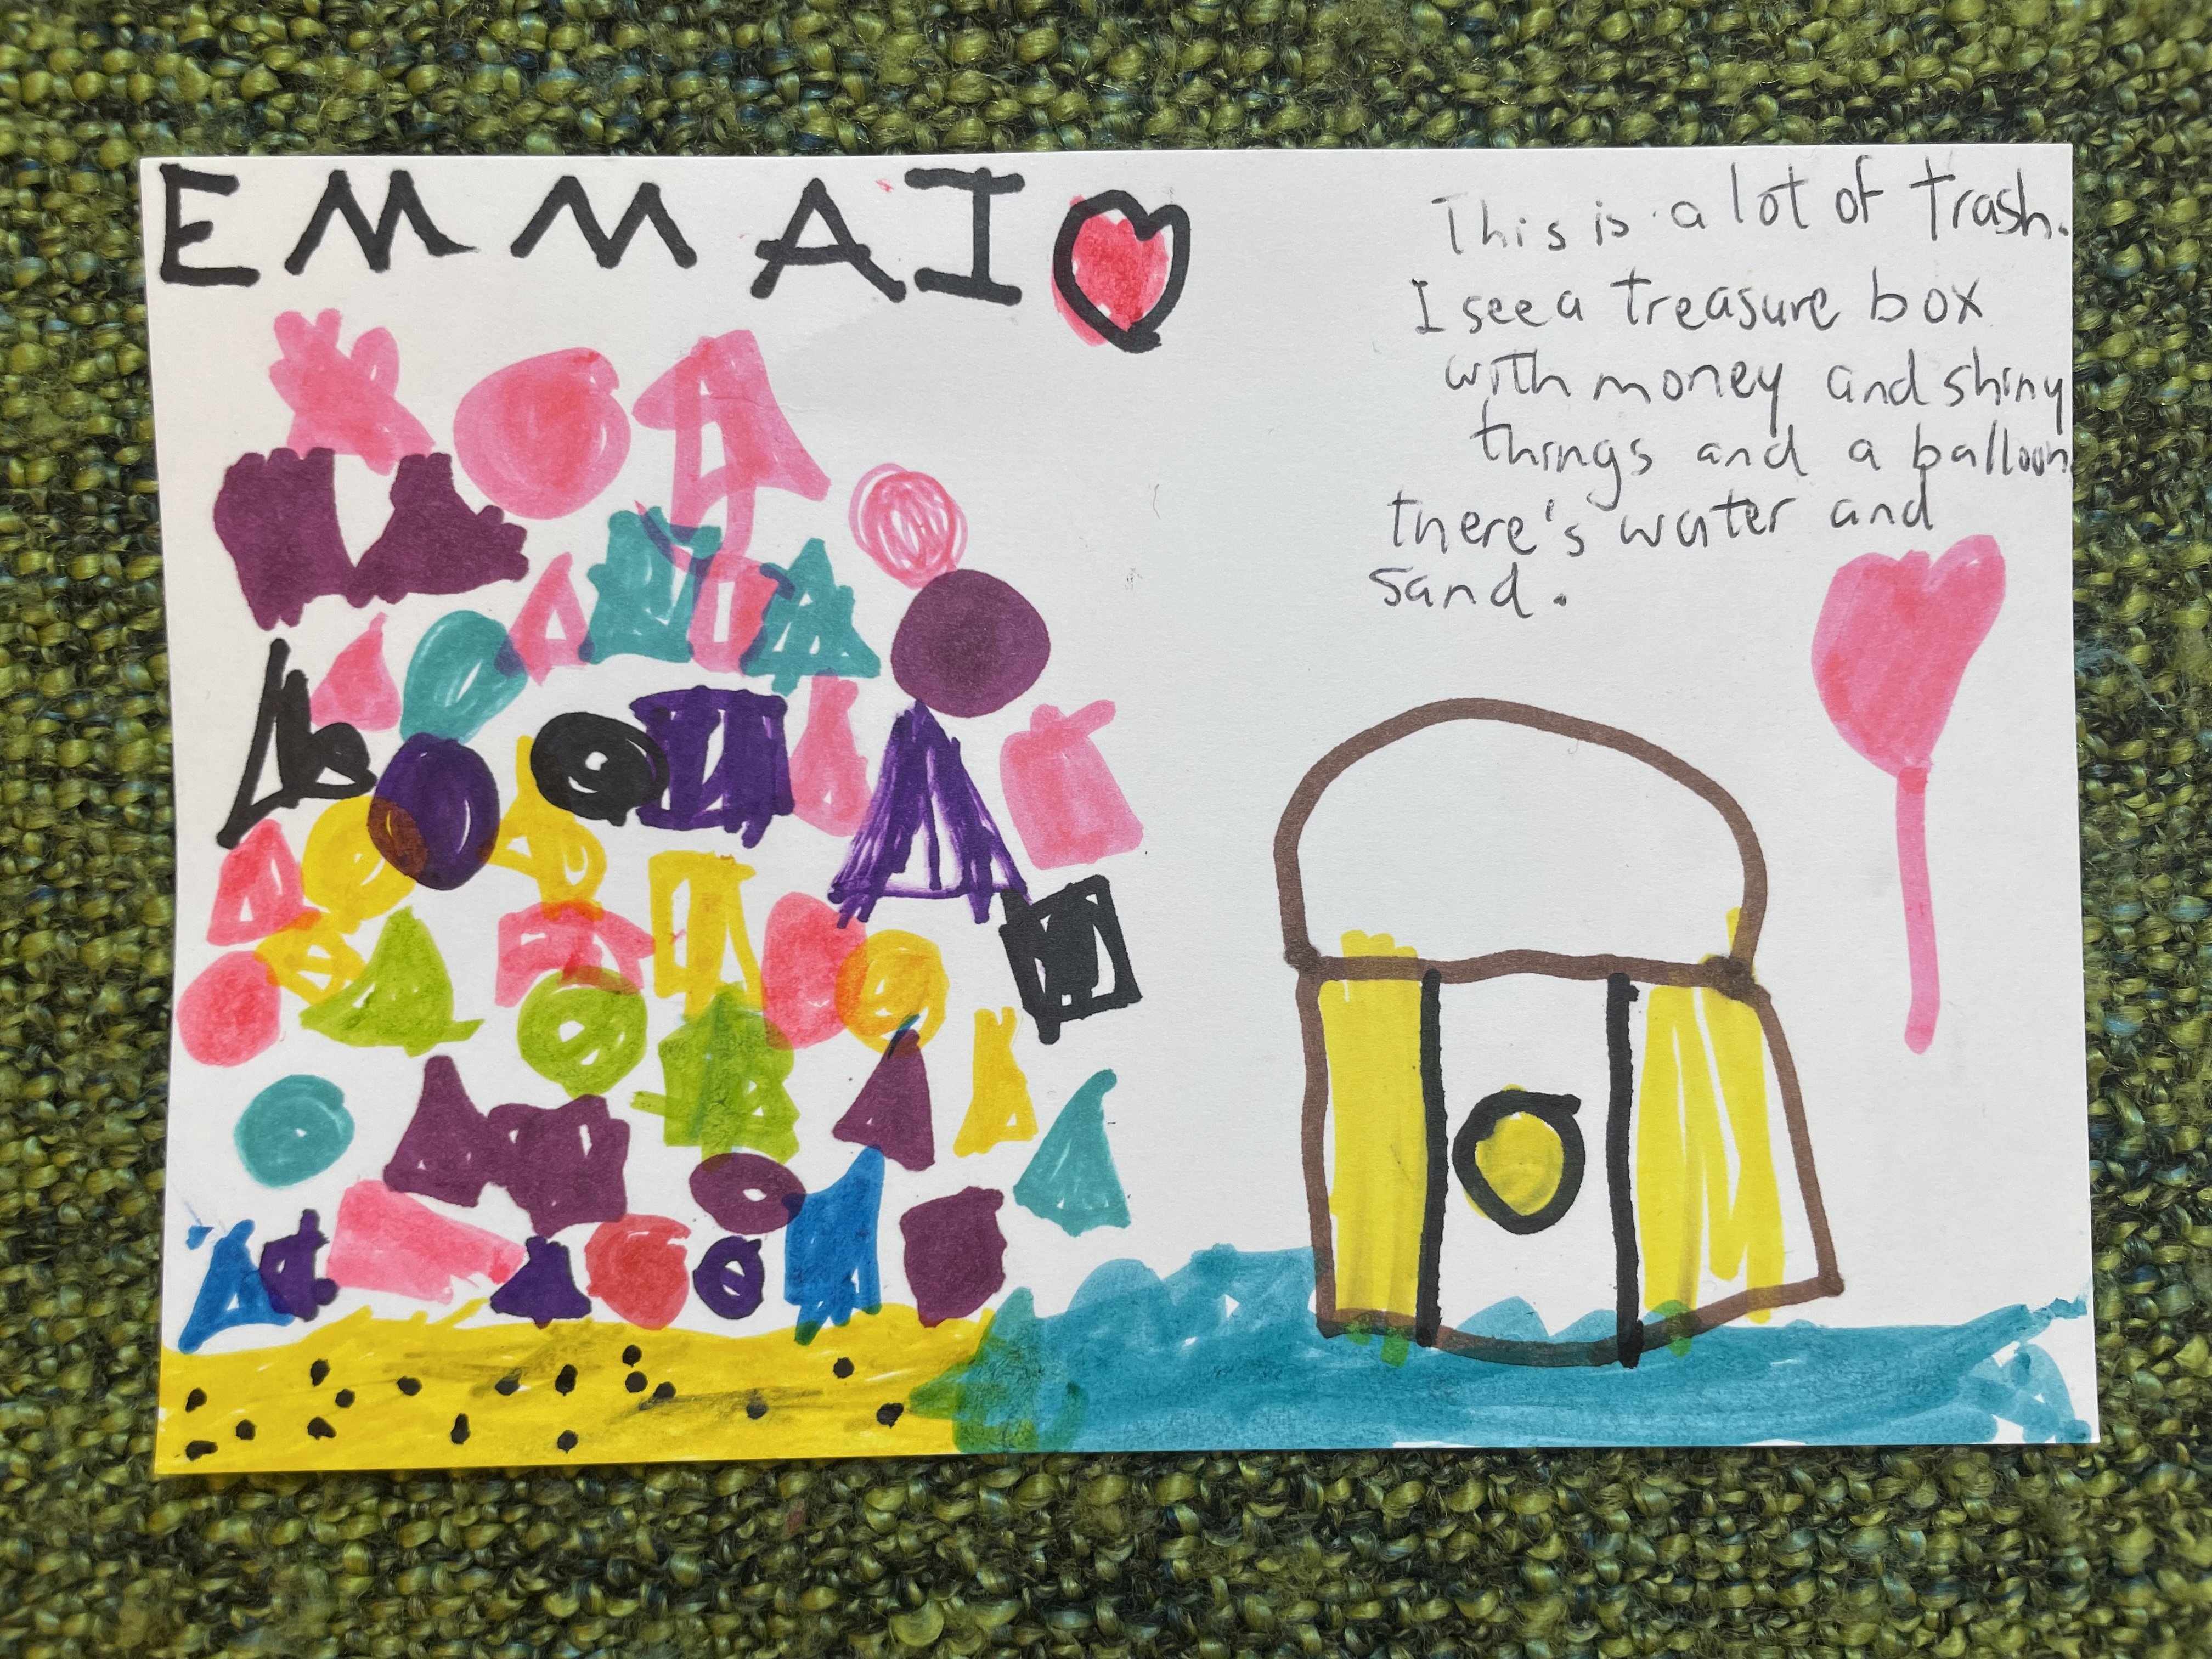 EMMA I
This is a lot of trash.
I see a treasure box
with money and shiny
things and a balloon
there's water and
sand.